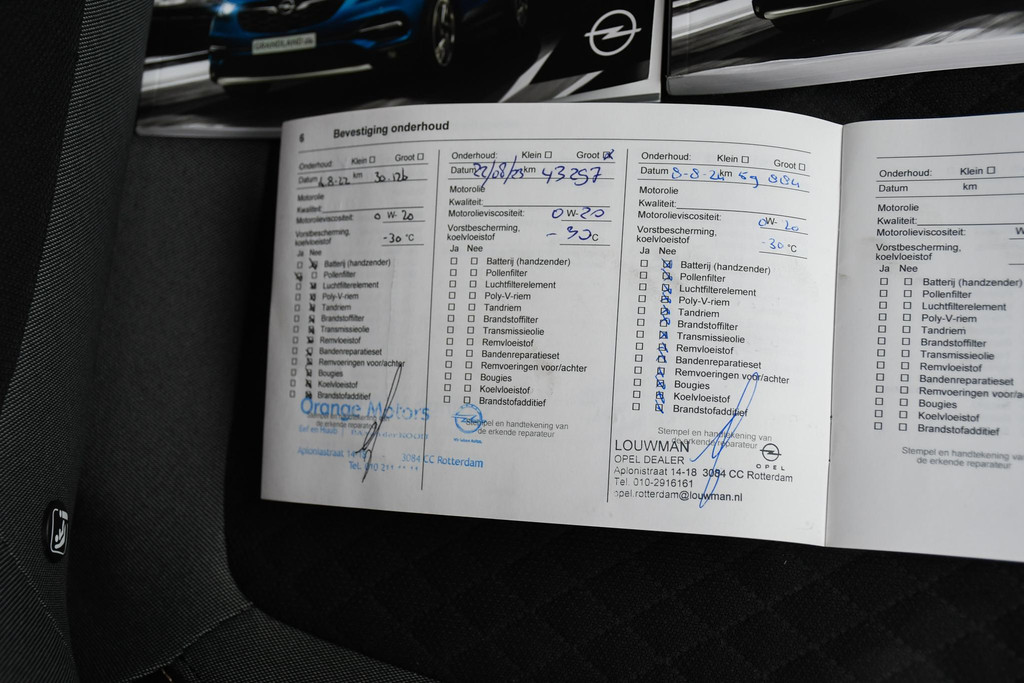 GRANDLAND
6 Bevestiging onderhoud
Onderhoud: Klein Groot
Datum 4-8-22 km 30.126
Motorolie
Kwaliteit:
Motorolieviscositeit: 0 W- 20
Vorstbescherming,
koelvloeistof -30 °C
Ja Nee
Batterij (handzender)
Pollenfilter
Luchtfilterelement
Poly-V-riem
Tandriem
Brandstoffilter
Transmissieolie
Remvloeistof
Bandenreparatieset
Remvoeringen voor/achter
Bougies
Koelvloeistof
Brandstofadditief
Orange Motors
Aploniastraat 14-18 3084 CC Rotterdam
Tel. 010
Onderhoud: Klein Groot
Datum 22/08/23 km 43297
Motorolie
Kwaliteit:
Motorolieviscositeit: 0 W-20
Vorstbescherming,
koelvloeistof -30 C
Ja Nee
Batterij (handzender)
Pollenfilter
Luchtfilterelement
Poly-V-riem
Tandriem
Brandstoffilter
Transmissieolie
Remvloeistof
Bandenreparatieset
Remvoeringen voor/achter
Bougies
Koelvloeistof
Brandstofadditief
Stempel en handtekening van
de erkende reparateur
Onderhoud: Klein Groot
Datum 8-8-24 km 59 984
Motorolie
Kwaliteit:
Motorolieviscositeit: 0W- 20
Vorstbescherming,
koelvloeistof -30 °C
Ja Nee
Batterij (handzender)
Pollenfilter
Luchtfilterelement
Poly-V-riem
Tandriem
Brandstoffilter
Transmissieolie
Remvloeistof
Bandenreparatieset
Remvoeringen voor/achter
Bougies
Koelvloeistof
Brandstofadditief
Stempel en handtekening van
de erkende reparateur
LOUWMAN
OPEL DEALER OPEL
Aplonistraat 14-18 3084 CC Rotterdam
Tel. 010-2916161
opel.rotterdam@louwman.nl
Onderhoud: Klein
Datum km
Motorolie
Kwaliteit:
Motorolieviscositeit: W
Vorstbescherming,
koelvloeistof
Ja Nee
Batterij (handzender)
Pollenfilter
Luchtfilterelement
Poly-V-riem
Tandriem
Brandstoffilter
Transmissieolie
Remvloeistof
Bandenreparatieset
Remvoeringen voor/a
Bougies
Koelvloeistof
Brandstofadditief
Stempel en handtekening va
de erkende reparateur